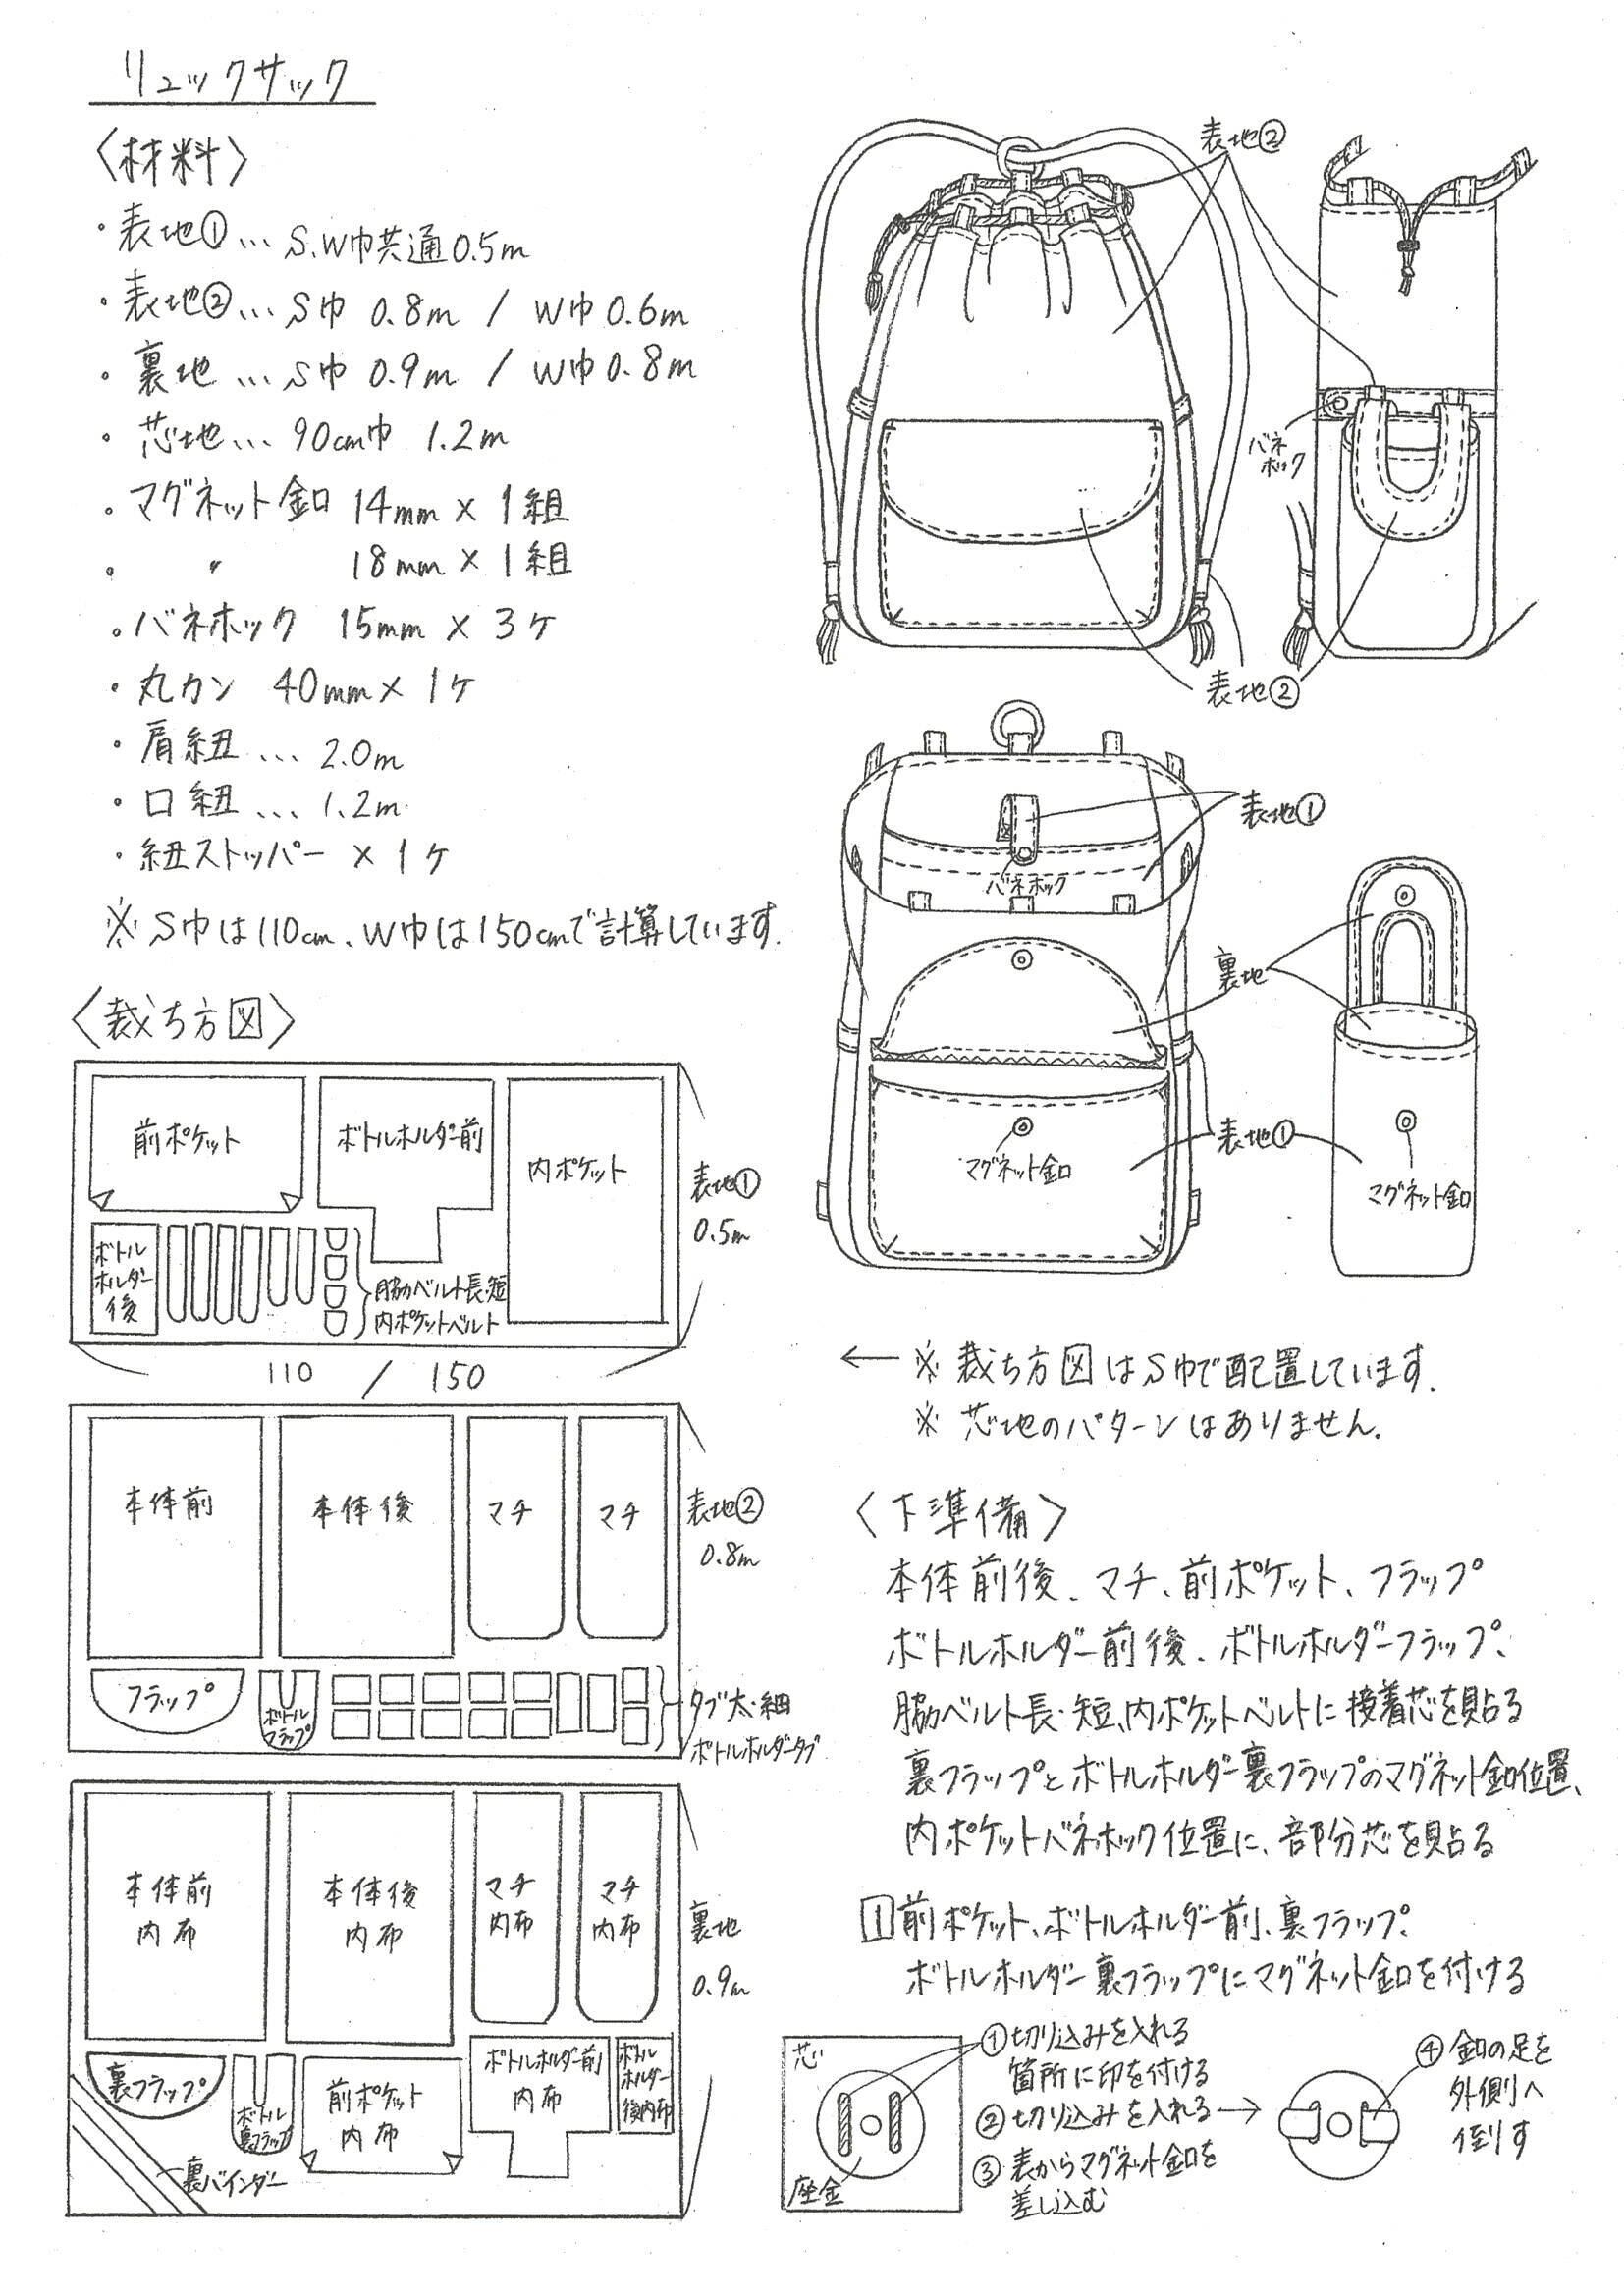 リュックサック
〈材料〉
・表地① … S.W巾共通0.5m
・表地② … S巾 0.8m / W巾0.6m
・裏地 … S巾 0.9m / W巾0.8m
・芯地 … 90cm巾 1.2m
・マグネット釦 14mm × 1組
・ 〃 18mm × 1組
・バネホック 15mm × 3ケ
・丸カン 40mm × 1ケ
・肩紐 … 2.0m
・口紐 … 1.2m
・紐ストッパー × 1ケ
※ S巾は110cm、W巾は150cmで計算しています.
〈裁ち方図〉
前ポケット
ボトルホルダー前
内ポケット
ボトル
ホルダー
後
脇ベルト長・短
内ポケットベルト
表地①
0.5m
110 / 150
本体前
本体後
マチ
マチ
フラップ
ボトル
フラップ
タブ太・細
ボトルホルダータブ
表地②
0.8m
本体前
内布
本体後
内布
マチ
内布
マチ
内布
裏フラップ
ボトル
裏フラップ
前ポケット
内布
ボトルホルダー前
内布
ボトル
ホルダー
後内布
裏バインダー
裏地
0.9m
表地②
バネ
ホック
表地②
表地①
バネホック
裏地
表地①
マグネット釦
マグネット釦
← ※ 裁ち方図はS巾で配置しています.
※ 芯地のパターンはありません.
〈下準備〉
本体前後、マチ、前ポケット、フラップ
ボトルホルダー前後、ボトルホルダーフラップ、
脇ベルト長・短、内ポケットベルトに接着芯を貼る
裏フラップとボトルホルダー裏フラップのマグネット釦位置、
内ポケットバネホック位置に、部分芯を貼る
1 前ポケット、ボトルホルダー前、裏フラップ、
ボトルホルダー裏フラップにマグネット釦を付ける
芯
座金
①切り込みを入れる
箇所に印を付ける
②切り込みを入れる→
③表からマグネット釦を
差し込む
④釦の足を
外側へ
倒す